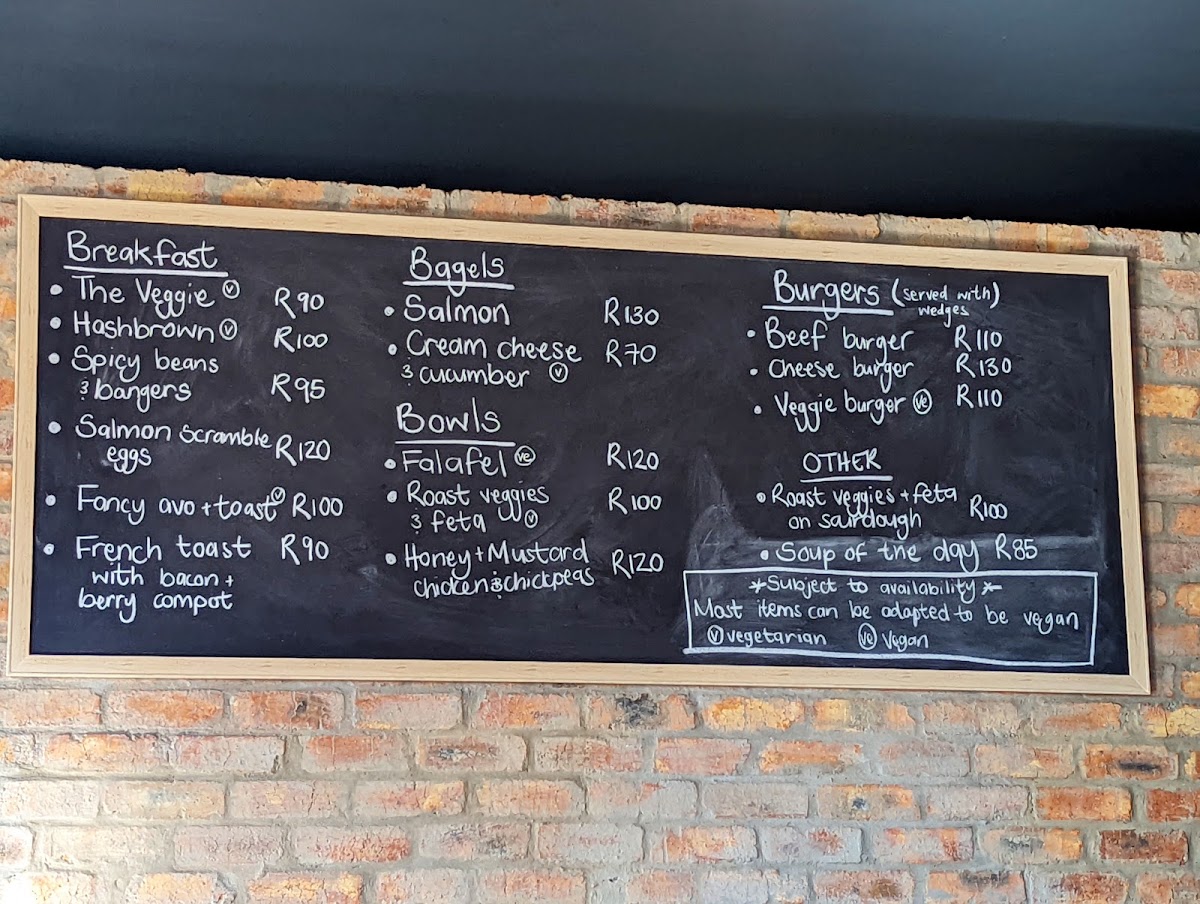 Breakfast
• The Veggie Ⓥ R90
• Hashbrown Ⓥ R100
• Spicy beans
& bangers R95
• Salmon scramble R120
eggs
• Fancy avo + toast Ⓥ R100
• French toast R90
with bacon +
berry compot
Bagels
• Salmon R130
• Cream cheese R70
& cucumber Ⓥ
Bowls
• Falafel (ve) R120
• Roast veggies R100
& feta Ⓥ
• Honey + Mustard R120
chicken & chickpeas
Burgers (served with)
wedges
• Beef burger R110
• Cheese burger R130
• Veggie burger (ve) R110
OTHER
• Roast veggies + feta
on sourdough R100
• Soup of the day R85
*Subject to availability*
Most items can be adapted to be vegan
Ⓥ vegetarian (ve) vegan